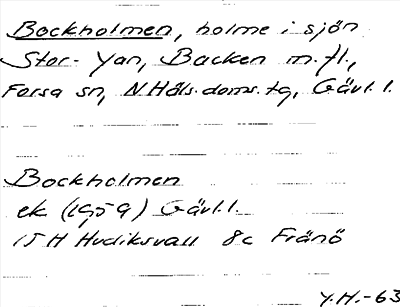 Bockholmen, holme i sjön
Stor-Yan, Backen m.fl.,
Forsa sn, N Häls. doms. tg, Gävl. l.
Bockholmen
ek (1959) Gävl. l.
15H Hudiksvall 8c Fränö
Y.H.-63